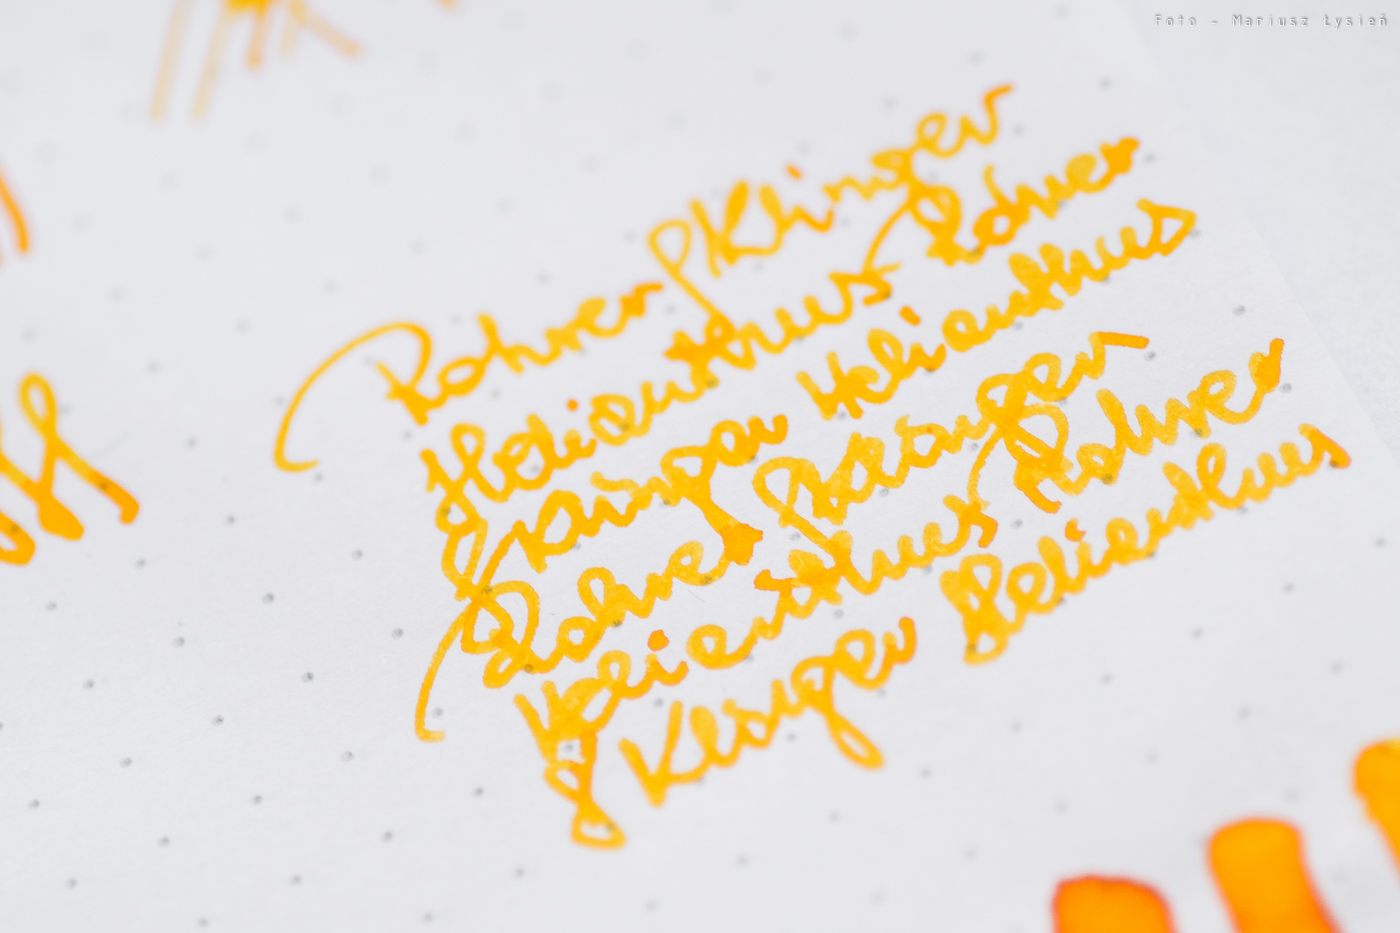 Foto - Mariusz Łysień
Rohrer & Klinger
Helianthus Rohrer
& Klinger Helianthus
Rohrer & Klinger
Helianthus Rohrer
& Klinger Helianthus